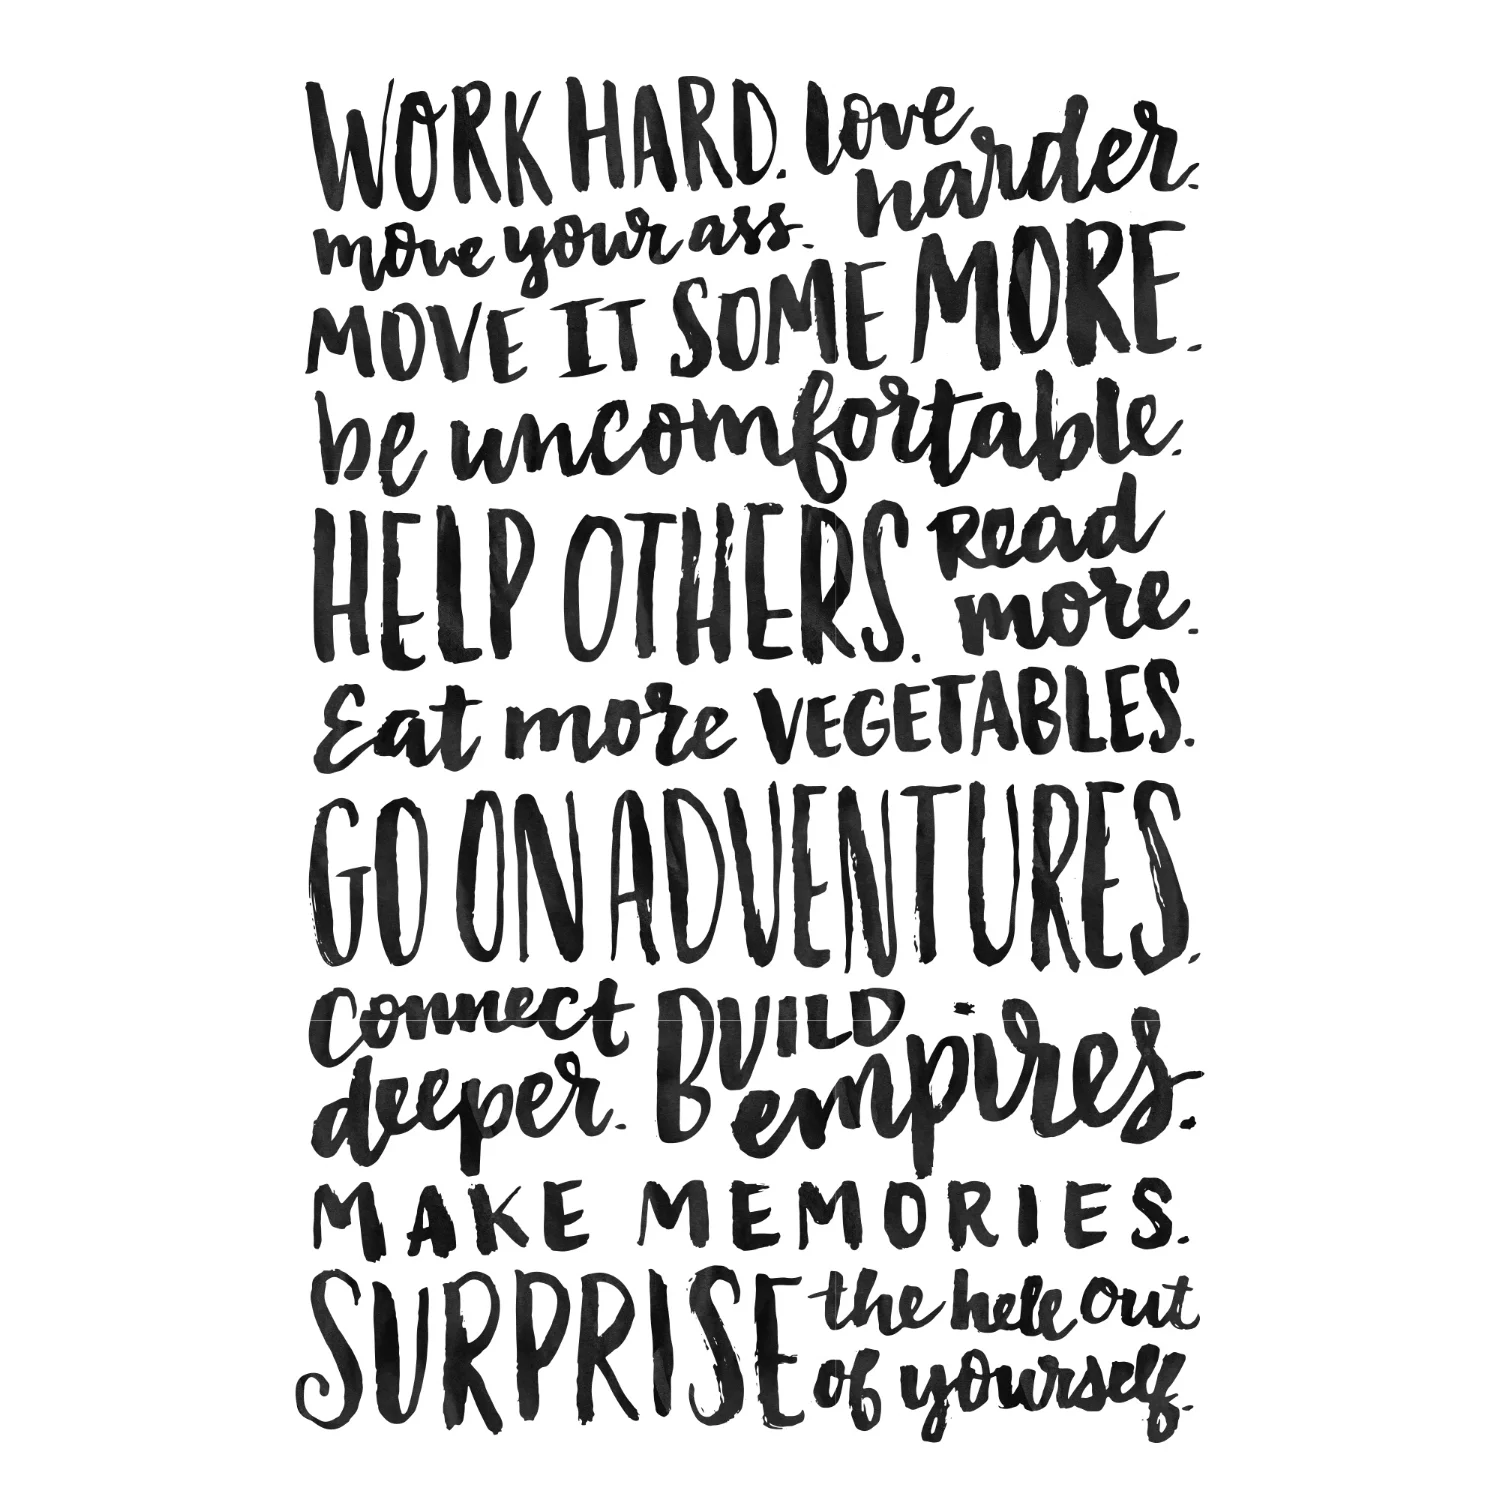 WORK HARD. love
harder.
move your ass.
MOVE IT SOME MORE.
be uncomfortable.
HELP OTHERS. Read
more.
Eat more VEGETABLES.
GO ON ADVENTURES.
Connect
deeper. BUILD
empires.
MAKE MEMORIES.
SURPRISE the hell out
of yourself.